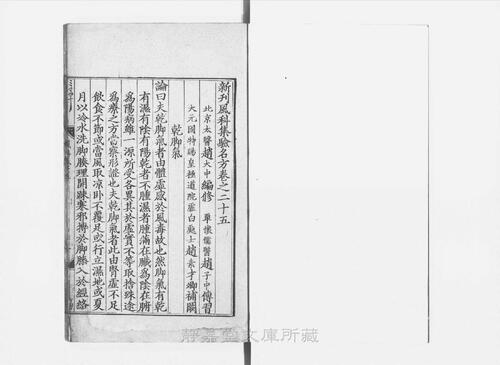 新刊風科集驗名方卷之二十五
北京太醫趙大中編修 覃懷儒醫趙子中傳習
大元國特賜皇極道院虛白處士趙素才卿補闕
乾脚氣
論曰夫乾脚氣者由體虛感於風毒故也然脚氣有乾
有濕有陰有陽乾者不腫濕者腫滿在臟為陰在腑
為陽病雖一源所受各異其於虛實不等取捨殊途
為療之方當察形證也夫乾脚氣者此由腎虛不足
飲食不節或當風取凉卧不覆足或行立濕地或夏
月以冷水洗脚腠理開踈寒邪搏於脚膝入於經絡
静嘉堂文庫所藏